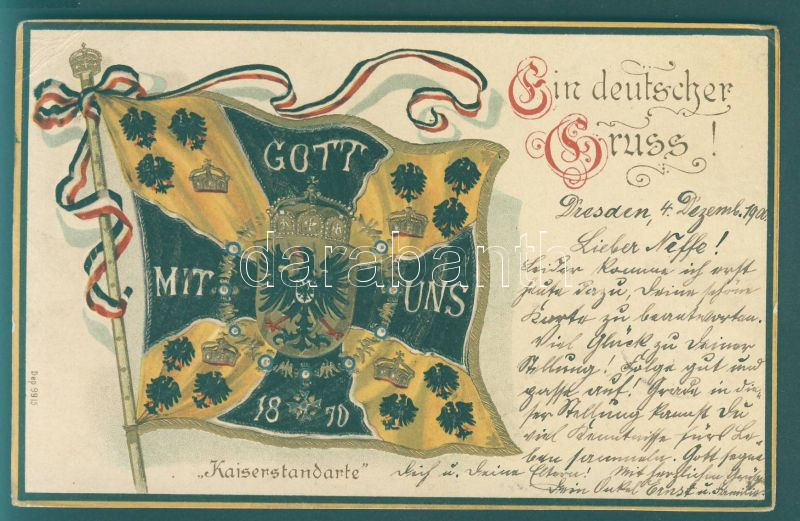 Ein deutscher
Gruss!
GOTT
MIT
UNS
18 70
darabanth
Dep. 9915
„Kaiserstandarte"
Dresden, 4. Dezemb. 1900.
Lieber Neffe!
Leider komme ich erst
heute dazu, Deine schöne
Karte zu beantworten.
Viel Glück zu Deiner
Stellung. Folge gut und
passe auf! Grade in die-
ser Stellung kannst Du
viel Kenntnisse fürs Le-
ben sammeln. Gott segne
Dich u. Deine Eltern! Mit herzlichen Grüßen
Dein Onkel Ernst u. Familie.